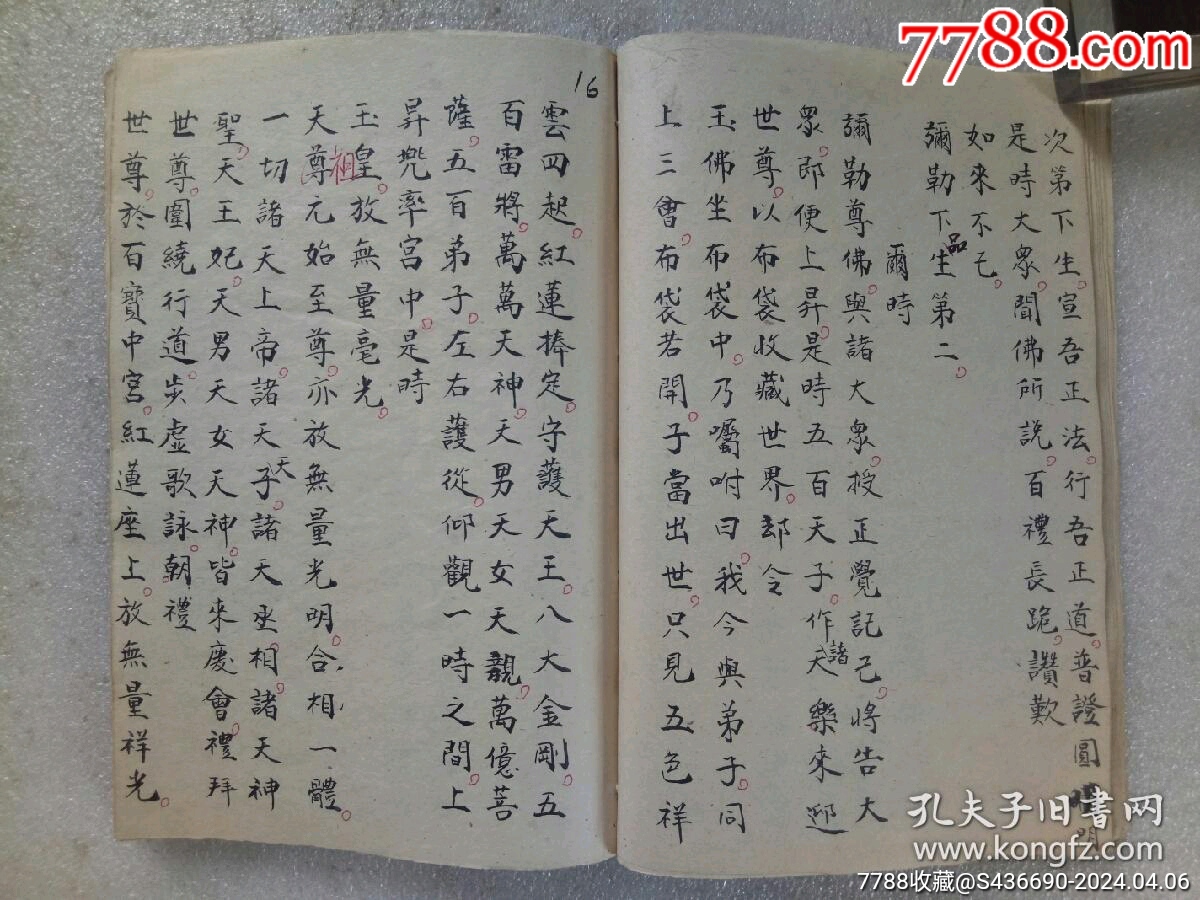 7788.com
次第下生。宣吾正法。行吾正道。普證圓明
是時大衆。聞佛所説。百禮長跪。讚歎
如來不已。
彌勒下生品第二。
爾時
彌勒尊佛。與諸大衆。授正覺記已。將告大
衆。即便上昇。是時五百天子。作諸天樂來迎
世尊。以布袋收藏世界。却令
玉佛坐布袋中。乃囑咐曰。我今與弟子。同
上三會。布袋若開。子當出世。只見五色祥
16
雲四起。紅蓮捧定。守護天王。八大金剛。五
百雷將。萬萬天神。天男天女天親。萬億菩
薩。五百弟子。左右護從。仰觀一時之間。上
昇兜率宮中。是時
玉皇。放無量毫光。
天尊祖元始至尊。亦放無量光明。合相一體。
一切諸天上帝。諸天天子。諸天丞相。諸天神
聖。天王天妃。天男天女天神。皆來慶會。禮拜
世尊。圍繞行道。步虛歌詠。朝禮
世尊。於百寶中宮。紅蓮座上。放無量祥光。
孔夫子旧书网
www.kongfz.com
7788收藏@S436690-2024.04.06